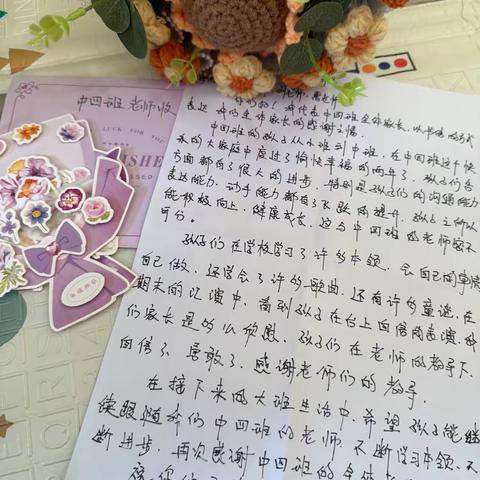 中四班老师收
LUCK FOR THE
老师:
你们好!我代表中四班全体家长,以书信的方式
表达我们全体家长的感谢之情。
中四班的孩子从小班到中班,在中四班这个快
乐的大家庭中度过了愉快幸福的两年了,孩子们各
方面都有了很大的进步,特别是孩子们的沟通能力
表达能力,动手能力都有了不断的提升,孩子之所以
能积极向上,健康成长,这与中四班的老师密不
可分。
孩子们在学校学习了许多本领,会自己的事情
自己做,还学会了许多歌曲,还有许多童谣,在
期末的汇演中,看到孩子在台上自信的表演,我
们家长是多么欣慰,孩子们在老师的教导下,
自信了,勇敢了,感谢老师们的教导。
在接下来的大班生活中,希望孩子能继
续跟随我们中四班的老师,不断学习本领,不
断进步,再次感谢中四班的全体